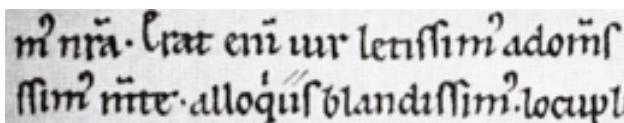 mꝰ nr̃a. Erat eni᷑ uir letissimꝰ ad om̃s
ssimꝰ m̃te. alloq̇iis blandissimꝰ. locupl